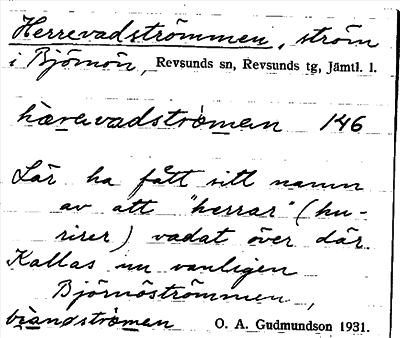 Herrevadströmmen, ström
i Björnön, Revsunds sn, Revsunds tg, Jämtl. l.
hæravadströmen 146
Lär ha fått sitt namn
av att "herrar" (hu-
sirer) vadat över där.
Kallas nu vanligen
Björnöströmmen,
O. A. Gudmundson 1931.